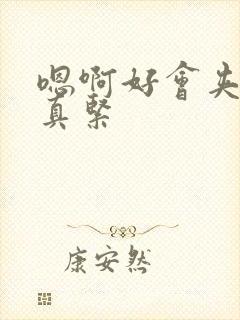 嗯啊好會夹
真緊
康安然